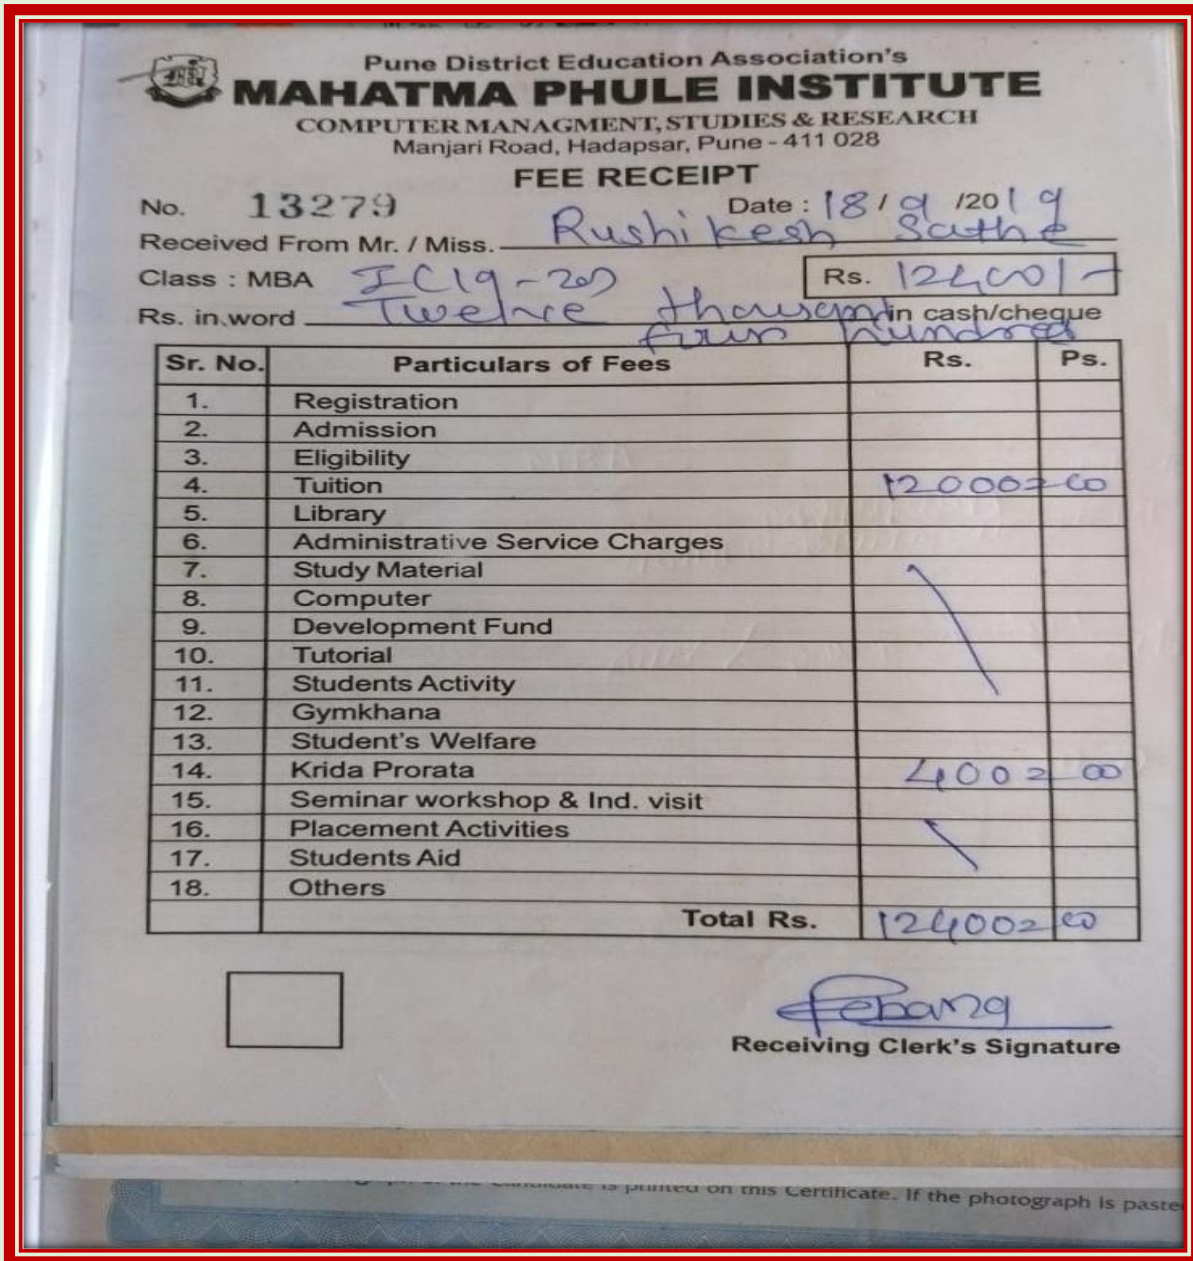 Pune District Education Association's
MAHATMA PHULE INSTITUTE
COMPUTER MANAGMENT, STUDIES & RESEARCH
Manjari Road, Hadapsar, Pune - 411 028
FEE RECEIPT
No. 13279 Date : 18 / 9 /2019
Received From Mr. / Miss. Rushikesh Sathe
Class : MBA Rs. 12400/-
Rs. in word Twelve thousand in cash/cheque
four hundred
Sr. No. Particulars of Fees Rs. Ps.
1. Registration
2. Admission
3. Eligibility
4. Tuition 12000=00
5. Library
6. Administrative Service Charges
7. Study Material
8. Computer
9. Development Fund
10. Tutorial
11. Students Activity
12. Gymkhana
13. Student's Welfare
14. Krida Prorata 400=00
15. Seminar workshop & Ind. visit
16. Placement Activities
17. Students Aid
18. Others
Total Rs. 12400=00
Receiving Clerk's Signature
is printed on this Certificate. If the photograph is paste